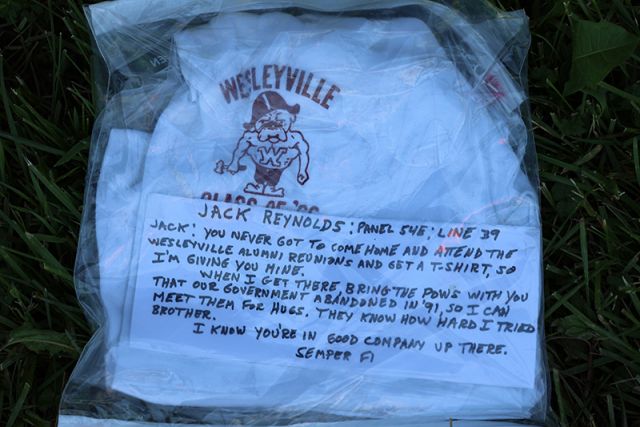 WESLEYVILLE
W
CLASS OF
JACK REYNOLDS; PANEL 54E; LINE 39
JACK: YOU NEVER GOT TO COME HOME AND ATTEND THE
WESLEYVILLE ALUMNI REUNIONS AND GET A T-SHIRT, SO
I'M GIVING YOU MINE.
WHEN I GET THERE, BRING THE POWS WITH YOU
THAT OUR GOVERNMENT ABANDONED IN '91, SO I CAN
MEET THEM FOR HUGS. THEY KNOW HOW HARD I TRIED
BROTHER.
I KNOW YOU'RE IN GOOD COMPANY UP THERE.
SEMPER FI